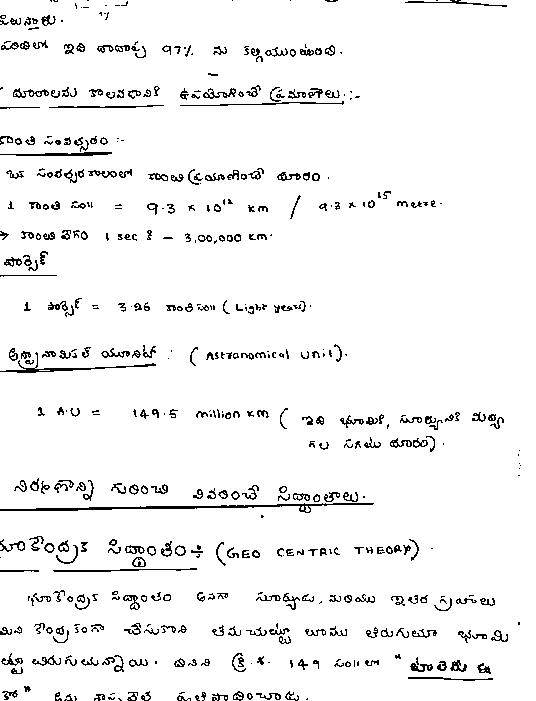 పిలుస్తారు.
పరిధిలో ఇది దాదాపు 97% ను కల్గియుంటుంది.
దూరాలను కాలవధానికి ఉపయోగించే ప్రమాణాలు :-
కాంతి సంవత్సరం :-
ఒక సంవత్సర కాలంలో కాంతి ప్రయాణించే దూరం.
1 కాంతి సం॥ = 9.3 × 10¹² km / 9.3 × 10¹⁵ metre.
→ కాంతి వేగం 1 sec కి – 3,00,000 km.
పార్సెక్
1 పార్సెక్ = 3.26 కాంతి సం॥ ( Light years).
ఆస్ట్రానామికల్ యూనిట్ : ( Astranomical Unit).
1 A.U = 149.5 million km ( ఇది భూమికి, సూర్యునికి మధ్య
గల సగటు దూరం).
గురించి వివరించే సిద్ధాంతాలు.
భూకేంద్రక సిద్ధాంతం÷ (GEO CENTRIC THEORY).
భూకేంద్రక సిద్ధాంతం అనగా సూర్యుడు, మరియు ఇతర గ్రహాలు
కేంద్రకంగా చేసుకొని తమచుట్టూ తాము తిరుగుతూ భూమి
చుట్టూ తిరుగుచున్నాయి. దీనిని క్రీ.శ. 149 సం॥లో "
శాస్త్రవేత్త ప్రతిపాదించాడు.